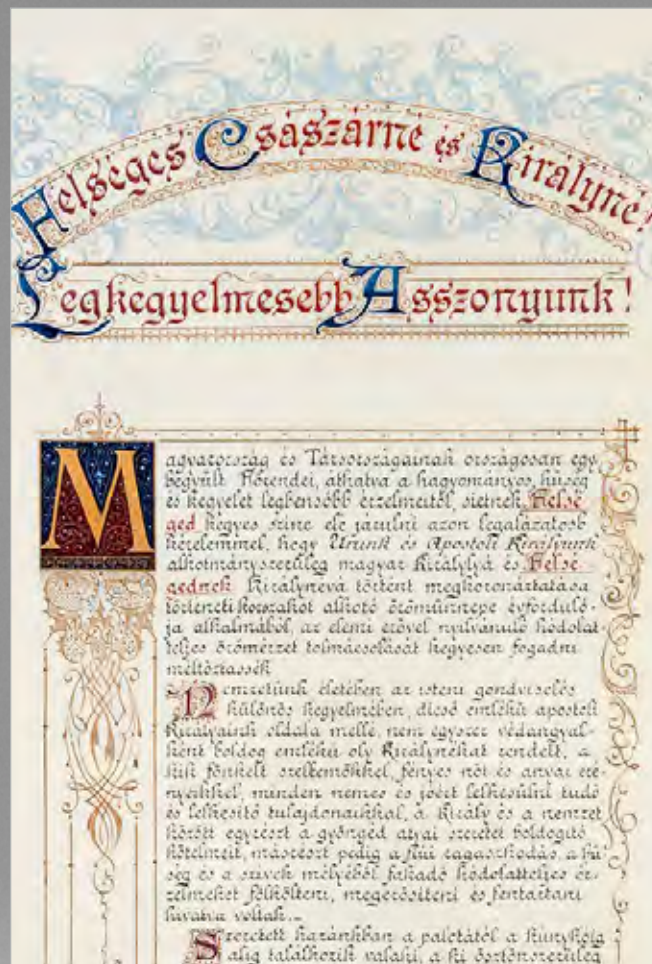 Felséges Császárné és Királyné!
Legkegyelmesebb Asszonyunk!
Magyarország és Társországainak országosan egy
begyűlt Főrendei, áthatva a hagyományos hűség
és kegyelet legbensőbb érzelmeitől, sietnek Felsé
ged kegyes színe elé járulni azon legalázatosb
kérelemmel, hogy Urunk és Apostoli Királyunk
alkotmányszerűleg magyar Királylyá és Felsé
gednek Királynévá történt megkoronáztatása
történeti korszakot alkotó örömünnepe évforduló-
ja alkalmából, az elemi erővel nyilvánuló hódolat
teljes örömérzet tolmácsolását kegyesen fogadni
méltóztassék
Nemzetünk életében az isteni gondviselés
különös kegyelméből, dicső emlékű apostoli
Királyaink oldala mellé, nem egyszer védangyal-
ként boldog emlékű oly Királynékat rendelt, a
kik fönkelt szellemökkel, fényes női és anyai eré-
nyeikkel, minden nemes és jóért lelkesülni tudó
és lelkesítő tulajdonaikkal, a Király és a nemzet
között egyrészt a gyöngéd atyai szeretet boldogító
kötelmeit, másrészt pedig a fiúi ragaszkodás, a hű
ség és a szivek mélyéből fakadó hódolatteljes ér-
zelmeket fölkölteni, megerősíteni és fentartani
hivatva voltak.-
Szeretett hazánkban a palotától a kunyhóig
alig találkozik valaki, a ki ösztönszerűleg